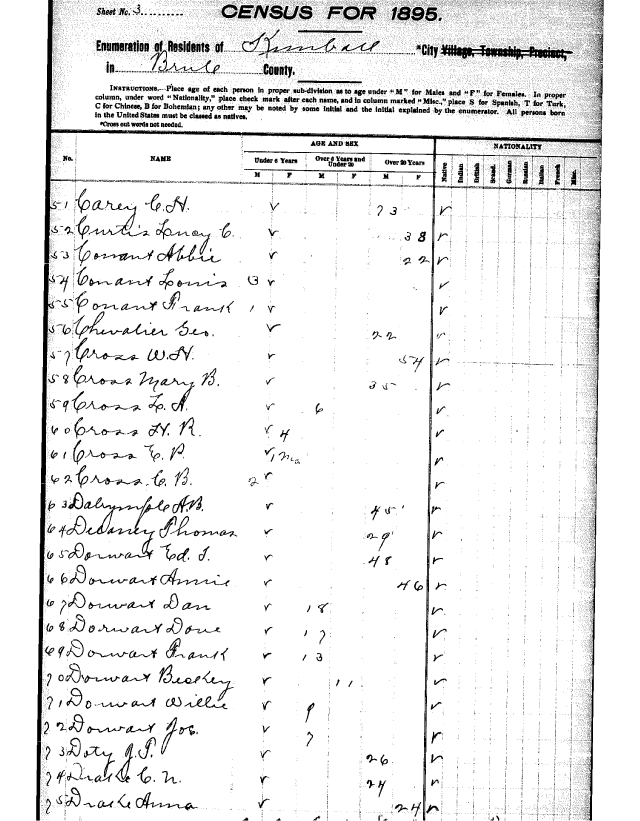 Sheet No. 3
CENSUS FOR 1895.
Enumeration of Residents of Kimball *City Village, Township, Precinct,
in Brule County.
INSTRUCTIONS.—Place age of each person in proper sub-division as to age under "M" for Males and "F" for Females. In proper
column, under word "Nationality," place check mark after each name, and in column marked "Misc.," place S for Spanish, T for Turk,
C for Chinese, B for Bohemian; any other may be noted by some initial and the initial explained by the enumerator. All persons born
in the United States must be classed as natives.
*Cross out words not needed.
AGE AND SEX NATIONALITY
No. NAME Under 6 Years Over 6 Years and Under 20 Over 20 Years Native Indian British Scand. German Russian Italian French Misc.
M F M F M F
51 Carey C. H. ✓ 73 ✓
52 Curtis Lucy C. ✓ 38 ✓
53 Conant Abbie ✓ 22 ✓
54 Conant Louis 3 ✓ ✓
55 Conant Frank 1 ✓ ✓
56 Chevalier Geo. ✓ 22 ✓
57 Cross W. H. ✓ 54 ✓
58 Cross Mary B. ✓ 35 ✓
59 Cross L. A. ✓ 6 ✓
60 Cross H. R. ✓ 4 ✓
61 Cross E. P. ✓ 1 ✓
62 Cross C. B. 2 ✓ ✓
63 Dalrymple A. B. ✓ 45 ✓
64 Delaney Thomas ✓ 29 ✓
65 Dorwart Ed. T. ✓ 48 ✓
66 Dorwart Annie ✓ 46 ✓
67 Dorwart Dan ✓ 18 ✓
68 Dorwart Dove ✓ 17 ✓
69 Dorwart Frank ✓ 13 ✓
70 Dorwart ✓ 11 ✓
71 Dorwart Willie ✓ 9 ✓
72 Dorwart Joe. ✓ 7 ✓
73 Doty J. P. ✓ 26 ✓
74 Drake C. N. ✓ 24 ✓
75 Drake Anna ✓ 24 ✓